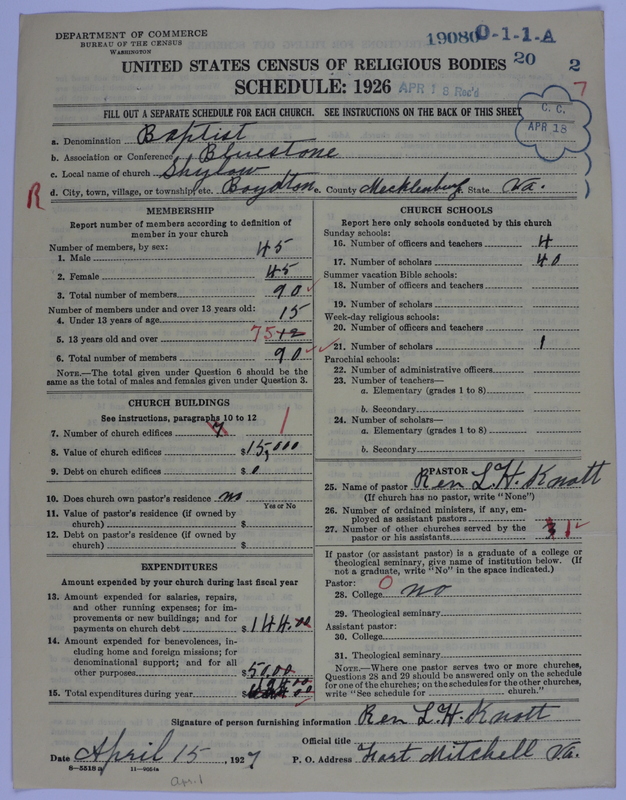 DEPARTMENT OF COMMERCE
BUREAU OF THE CENSUS
WASHINGTON
19080 0-1-1-A
20 2
UNITED STATES CENSUS OF RELIGIOUS BODIES
SCHEDULE: 1926
APR 18 Rec'd
7
FILL OUT A SEPARATE SCHEDULE FOR EACH CHURCH. SEE INSTRUCTIONS ON THE BACK OF THIS SHEET
C. C.
APR 18
a. Denomination Baptist
b. Association or Conference Bluestone
c. Local name of church Shylow
R
d. City, town, village, or township, etc. Boydton e. County Mecklenburg f. State Va.
MEMBERSHIP
Report number of members according to definition of member in your church
Number of members, by sex:
1. Male 45
2. Female 45
3. Total number of members 90
Number of members under and over 13 years old:
4. Under 13 years of age 15
5. 13 years old and over 75 12
6. Total number of members 90
NOTE.—The total given under Question 6 should be the same as the total of males and females given under Question 3.
CHURCH BUILDINGS
See instructions, paragraphs 10 to 12
7. Number of church edifices 1
8. Value of church edifices $15,000
9. Debt on church edifices $0
10. Does church own pastor's residence no
Yes or No
11. Value of pastor's residence (if owned by church) $
12. Debt on pastor's residence (if owned by church) $
EXPENDITURES
Amount expended by your church during last fiscal year
13. Amount expended for salaries, repairs, and other running expenses; for improvements or new buildings; and for payments on church debt $144.00
14. Amount expended for benevolences, including home and foreign missions; for denominational support; and for all other purposes 50.00
15. Total expenditures during year $
CHURCH SCHOOLS
Report here only schools conducted by this church
Sunday schools:
16. Number of officers and teachers 4
17. Number of scholars 40
Summer vacation Bible schools:
18. Number of officers and teachers
19. Number of scholars
Week-day religious schools:
20. Number of officers and teachers
21. Number of scholars 1
Parochial schools:
22. Number of administrative officers
23. Number of teachers—
a. Elementary (grades 1 to 8)
b. Secondary
24. Number of scholars—
a. Elementary (grades 1 to 8)
b. Secondary
PASTOR
25. Name of pastor Rev L. H. Knott
(If church has no pastor, write "None")
26. Number of ordained ministers, if any, employed as assistant pastors
27. Number of other churches served by the pastor or his assistants 3 1
If pastor (or assistant pastor) is a graduate of a college or theological seminary, give name of institution below. (If not a graduate, write "No" in the space indicated.)
Pastor: 0
28. College no
29. Theological seminary
Assistant pastor:
30. College
31. Theological seminary
NOTE.—Where one pastor serves two or more churches, Questions 28 and 29 should be answered only on the schedule for one of the churches; on the schedules for the other churches, write "See schedule for church."
Signature of person furnishing information Rev L. H. Knott
Official title
Date April 15, 1927 P. O. Address Fort Mitchell Va.
6—5518 a 11—9054a
Apr. 1